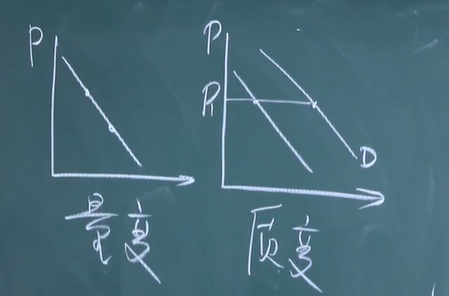 P
量变
P
P1
D
质变